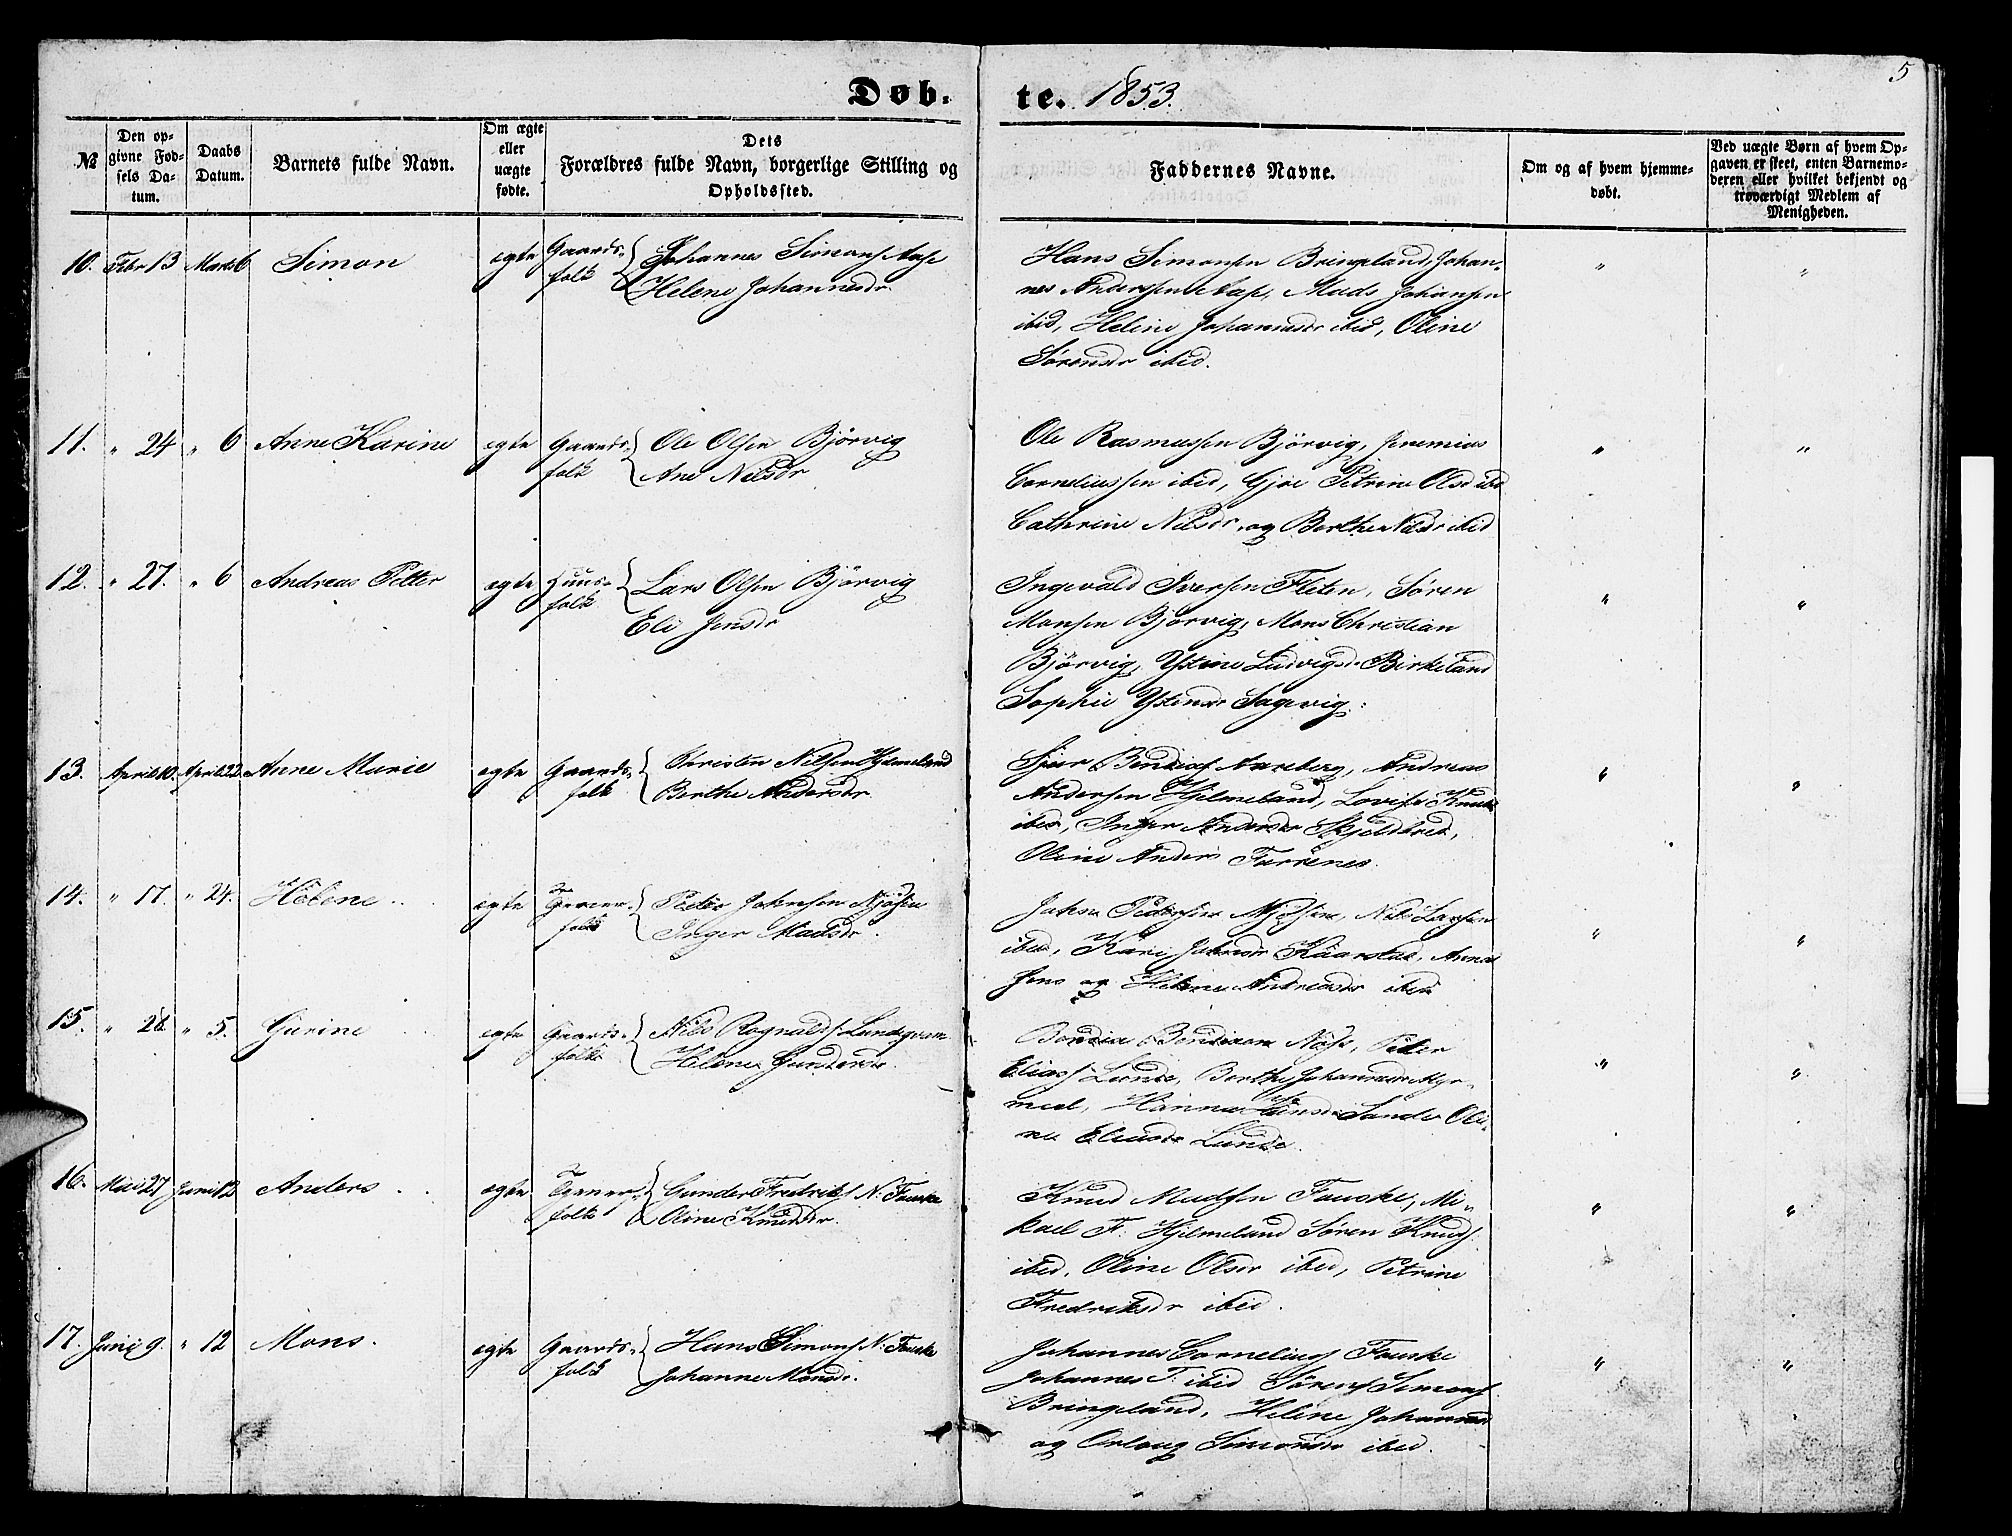 5
Døb- te. 1853.
№
Den op-
givne Fød-
sels Da-
tum.
Daabs
Datum.
Barnets fulde Navn.
Om ægte
eller
uægte
fødte.
Dets
Forældres fulde Navn, borgerlige Stilling og
Opholdssted.
Faddernes Navne.
Om og af hvem hjemme-
døbt.
Ved uægte Børn af hvem Op-
gaven er skeet, enten Barnemo-
deren eller hvilket bekjendt og
troværdigt Medlem af
Menigheden.
10. Febr 13 Marts 6 Simon ægte Gaards- Johannes Simons Aase
folk Helene Johannesdr.
Hans Simonsen Bringeland, Johan-
nes Anderssen Aase, Mads Johansen
ibid, Heline Johannesdr ibid, Oline
Sørensdr ibid.
" "
11. " 24 " 6 Anne Karine ægte Gaards- Ole Olsen Bjørvig
folk Ane Nilsdr
Ole Rasmussen Bjørvig, Jeremias
Corneliussen ibid, Gjøe Petrine Olsd ibd
Cathrine Nilsdr. og Berthe Nilsdr ibid
" "
12. " 27. " 6 Andreas Petter ægte Huus- Lars Olsen Bjørvig
folk Eli Jensdr
Ingevald Iversen Fleten, Søren
Monsen Bjørvig, Mons Christian
Bjørvig, Ystine Ludvigsd. Birkeland
Sophie Ystensdr Sagevig.
" "
13. April 10. April 22. Anne Marie ægte Gaards- Christen Nilsen Hjelmeland
folk Berthe Andersdr
Bendix Aareberg, Andreas
Andersen Hjelmeland, Lovise Knuds
ibid, Inger Andersdr Skjoldbred,
Oline Anders Furrenes.
" "
14. " 17. " 24. Helene ægte
folk Peder Johnsen Mjøsen
Inger Madsdr.
Johan Pedersen Mjøsen, Nils Larsen
ibid, Kari Johnsdr Kaarstad, Anna
Jens og Helene Andreasdr ibid
" "
15. " 28. " 5. Gurine ægte Gaards- Nils Rognalds. Lundqvam
folk Helene Gundersdr
Bendix Bendixen Næss, Peder
Elias Lunde, Berthe Johannesdr Myr-
meel, Hanna Sande Oli-
ne Eliasdr Lunde.
" "
16. Mai 27 Juni 12 Anders ægte Gunder Fredriks N: Fauske
folk Oline Knudsdr.
Knud Madsen Fauske, Mi-
kael F. Hjelmeland Søren Knuds
ibid. Oline Olsdr ibid, Petrine
Fredriksdr ibid.
" "
17. Juni 9. " 12 Mons. ægte Gaards- Hans Simons N: Fauske
folk Johanne Monsdr.
Johannes Cornelius Fauske
Johannes T. ibid Sørens Simons
Bringeland, Heline Johannes
og Orlaug Simonsdr ibid.
" "